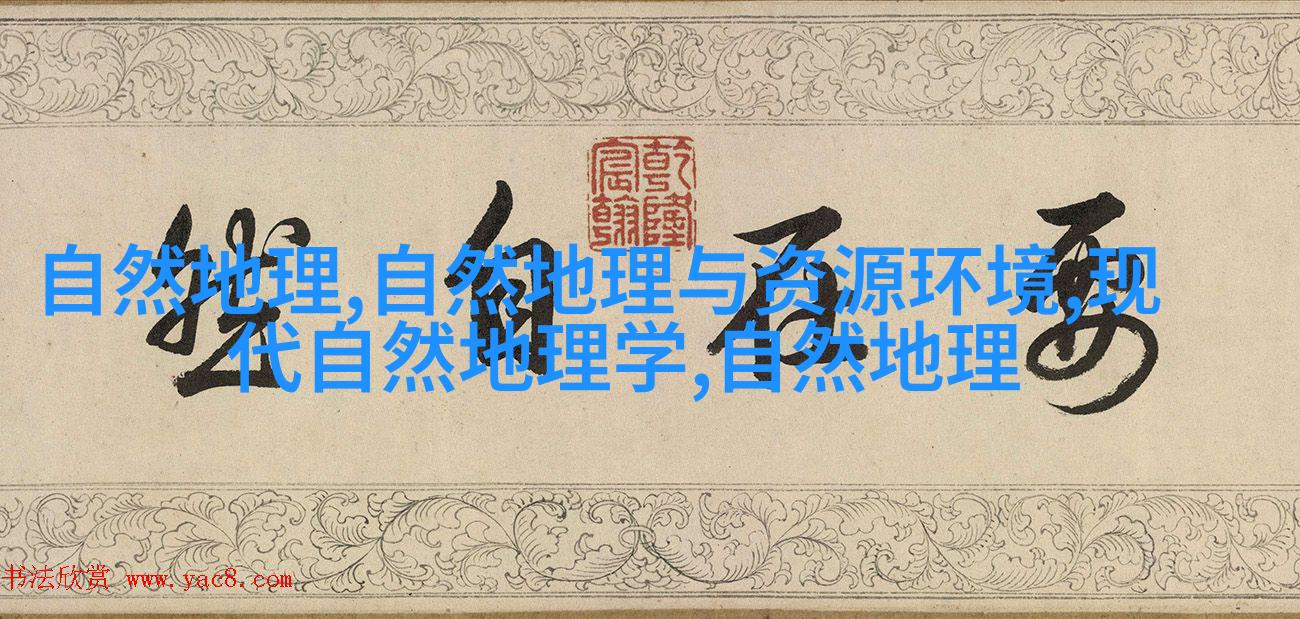 乾隆
宸翰
自
自然地理,自然地理与资源环境,现
代自然地理学,自然地理
书法欣赏 www.yac8.com